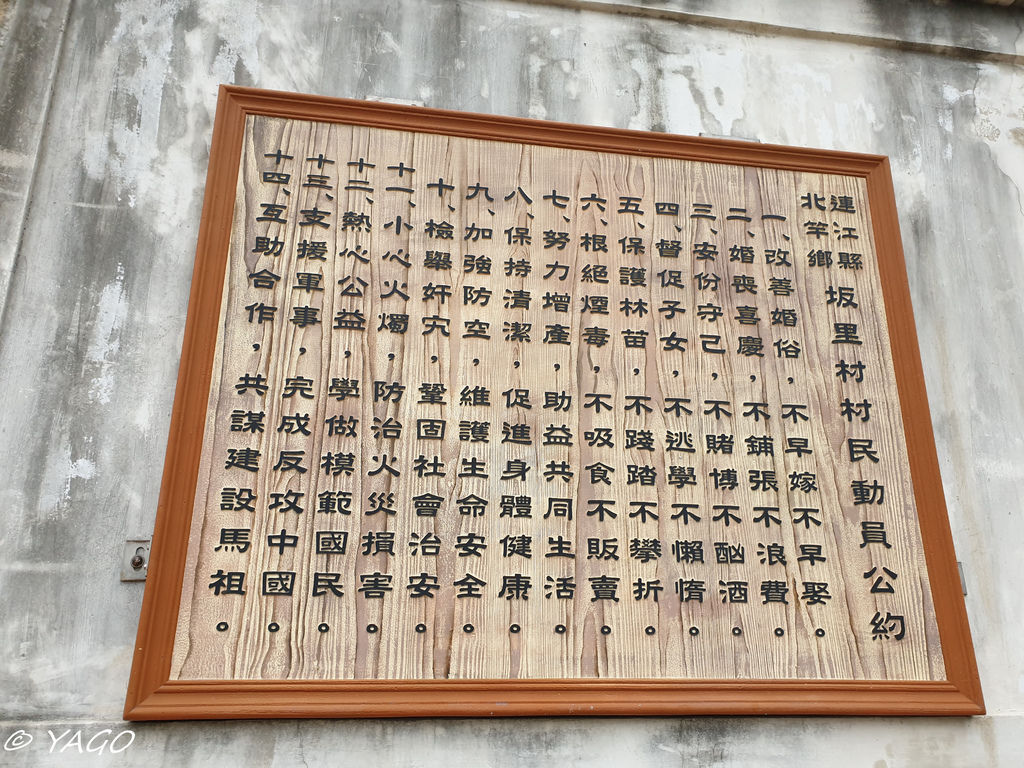 連江縣
北竿鄉
坂里村村民動員公約
一、改善婚俗，不早嫁不早娶。
二、婚喪喜慶，不鋪張不浪費。
三、安份守己，不賭博不酗酒。
四、督促子女，不逃學不懶惰。
五、保護林苗，不踐踏不攀折。
六、根絕煙毒，不吸食不販賣。
七、努力增產，助益共同生活。
八、保持清潔，促進身體健康。
九、加強防空，維護生命安全。
十、檢舉奸宄，鞏固社會治安。
十一、小心火燭，防治火災損害。
十二、熱心公益，學做模範國民。
十三、支援軍事，完成反攻中國。
十四、互助合作，共謀建設馬祖。
© YAGO